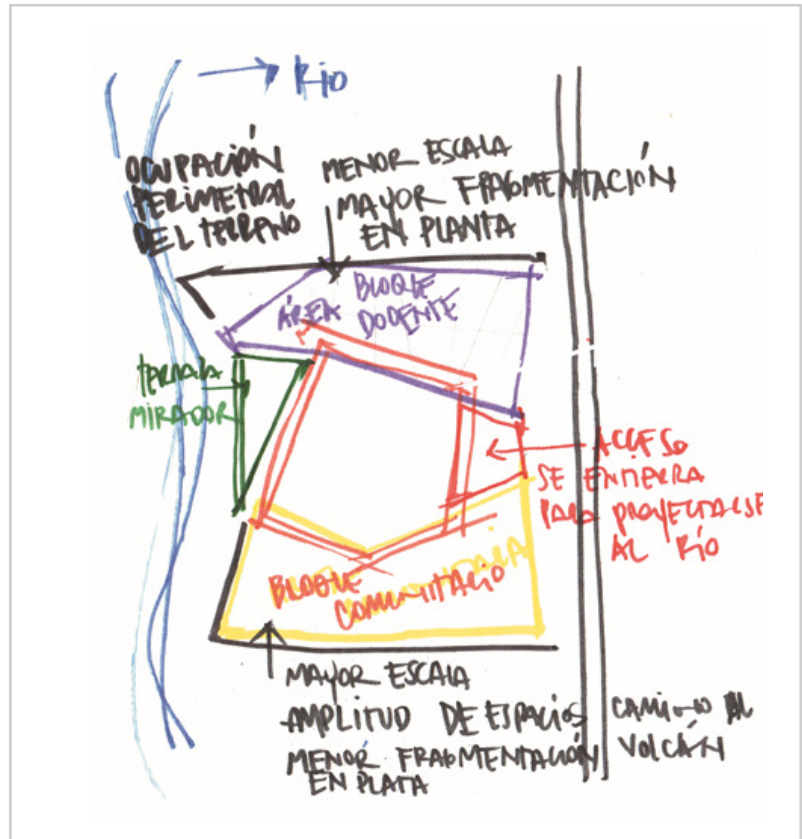 RÍO
OCUPACIÓN
PERIMETRAL
DEL TERRENO
MENOR ESCALA
MAYOR FRAGMENTACIÓN
EN PLANTA
ÁREA BLOQUE
DOCENTE
TERRAZA
MIRADOR
ACCESO
SE ENTIERRA
PARA PROYECTARSE
AL RÍO
BLOQUE
COMUNITARIO
MAYOR ESCALA
AMPLITUD DE ESPACIOS
MENOR FRAGMENTACIÓN
EN PLATA
CAMINO AL
VOLCÁN